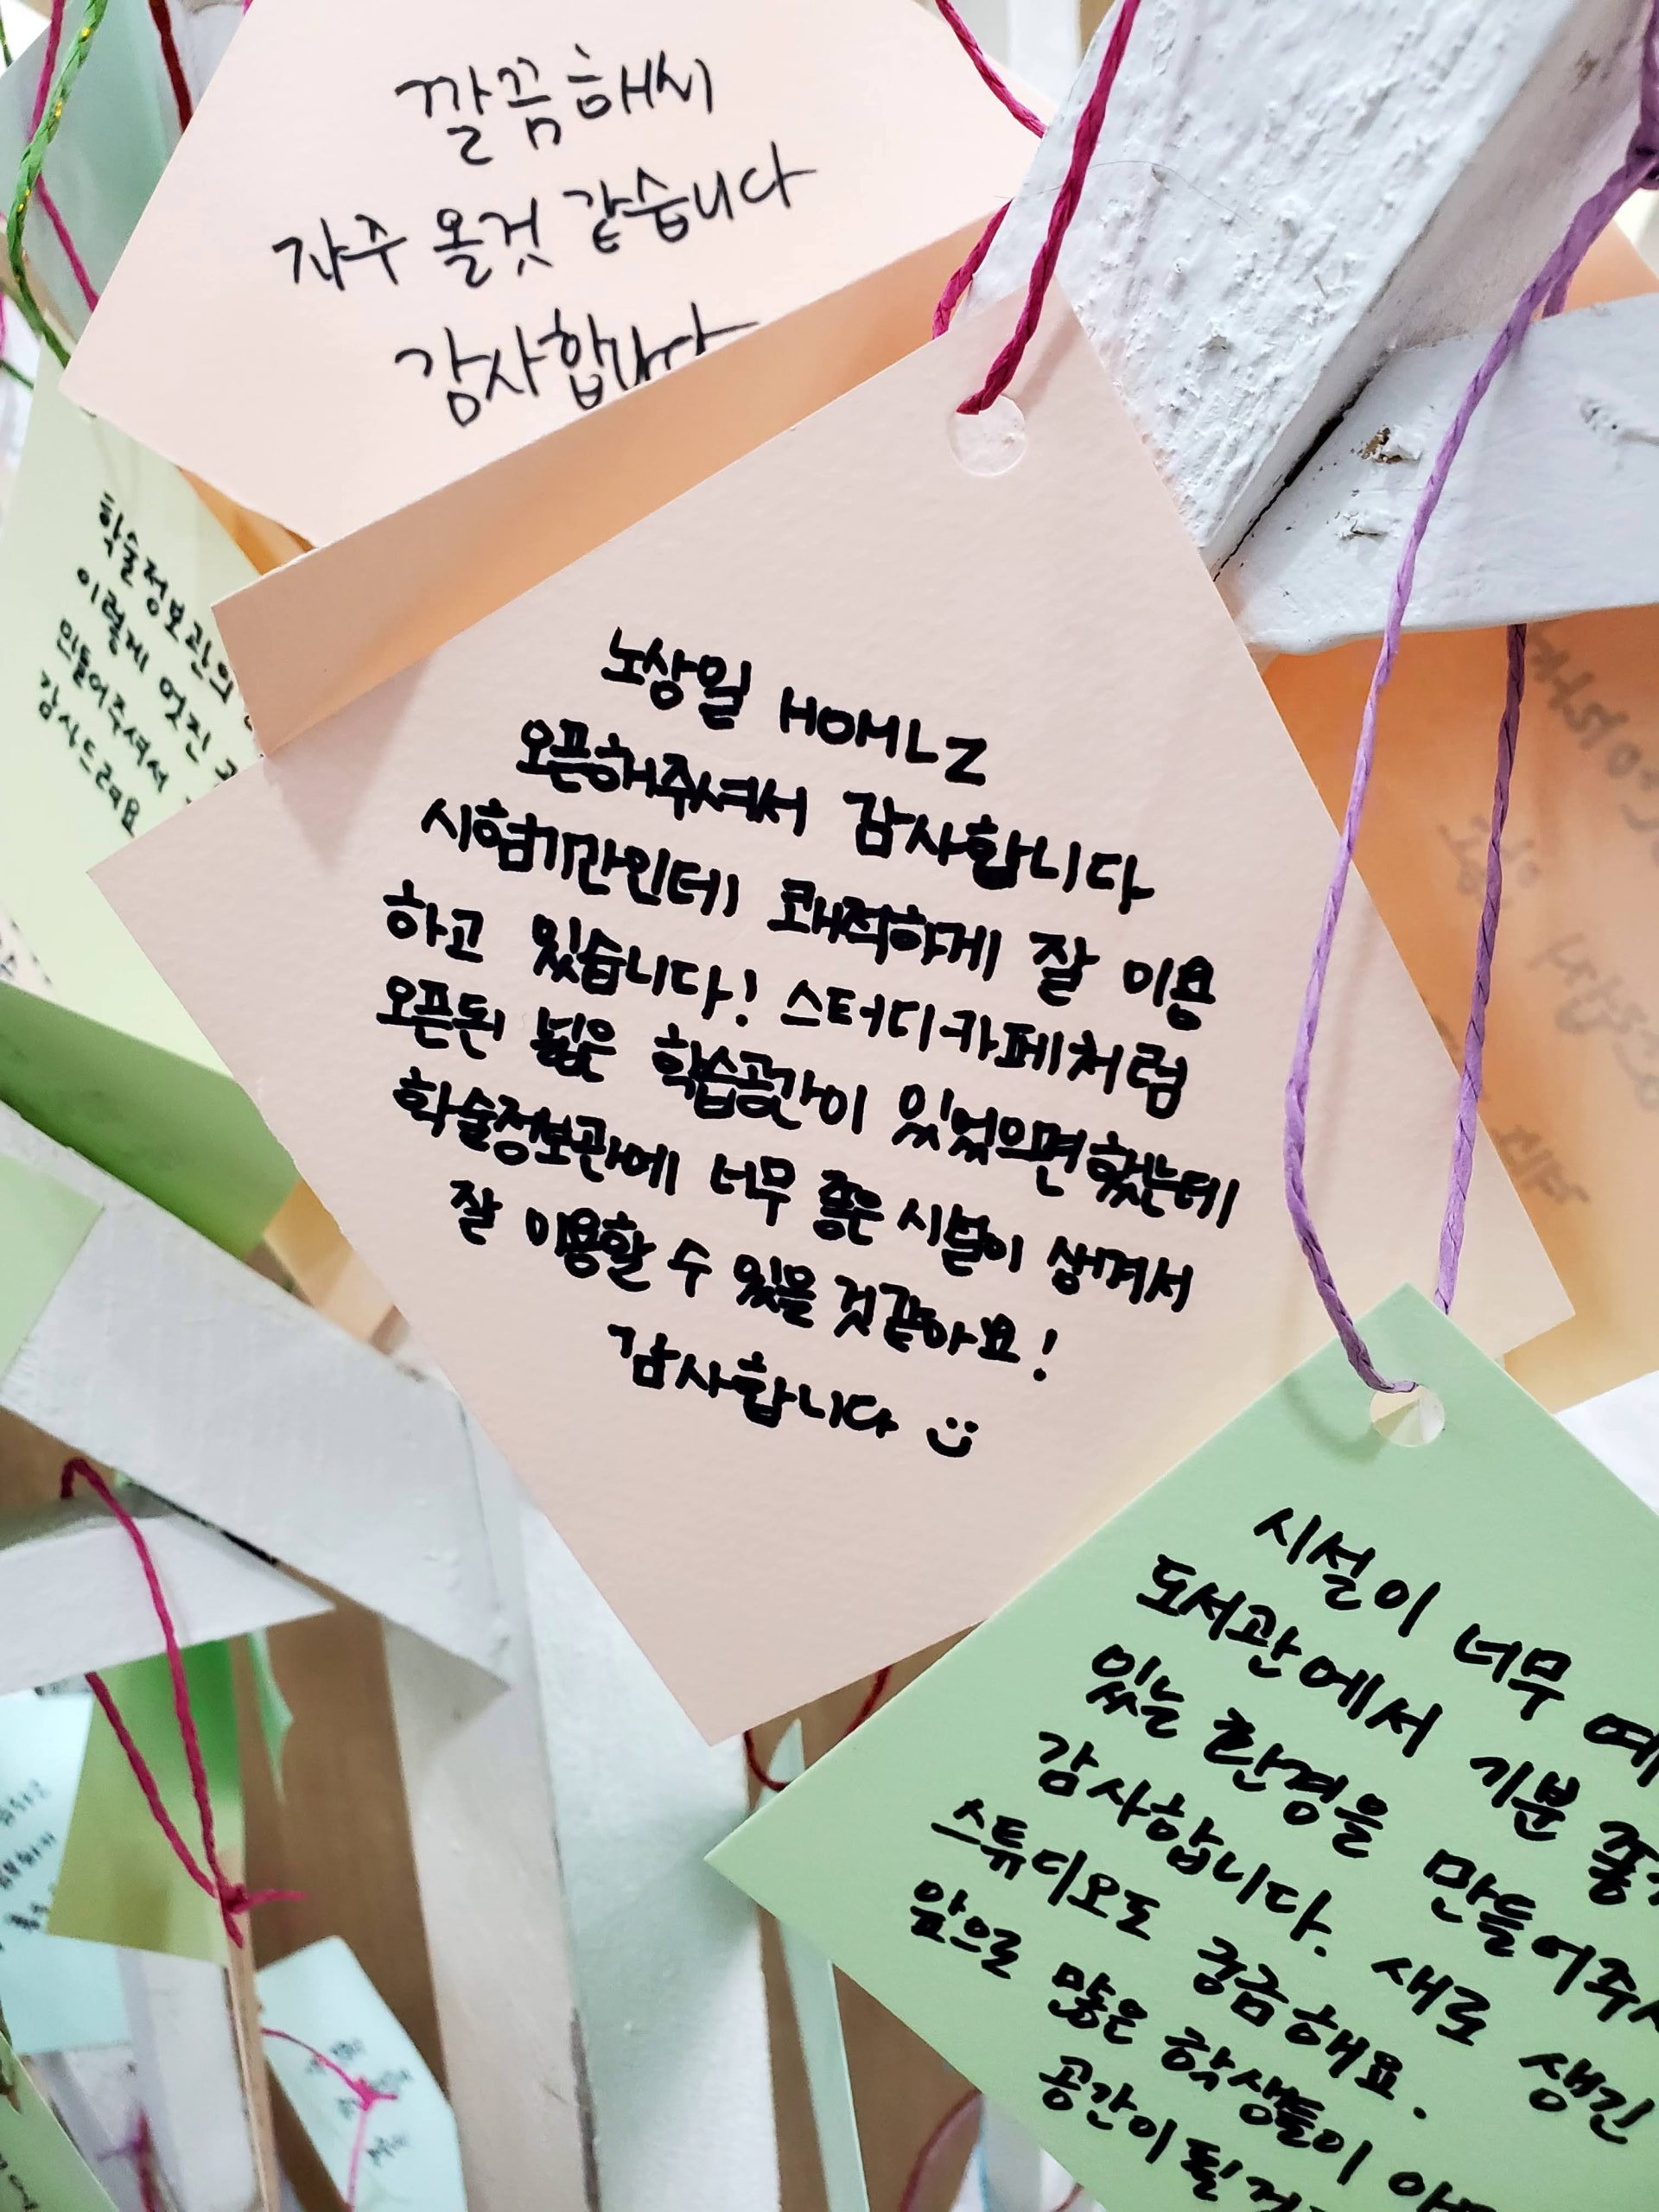 깔끔해서
자주 올것 같습니다
감사합니다
학술정보관의
이렇게 멋진
만들어주셔서
감사드려요
노상일 HOMLZ
오픈해주셔서 감사합니다
시험기간인데 쾌적하게 잘 이용
하고 있습니다! 스터디카페처럼
오픈된 넓은 학습공간이 있었으면했는데
학술정보관에 너무 좋은 시설이 생겨서
잘 이용할 수 있을 것같아요!
감사합니다 :)
시설이 너무 예
도서관에서 기분 좋
있는 환경을 만들어주
감사합니다. 새로 생긴
스튜디오도 궁금해요.
앞으로 많은 학생들이
공간이 될